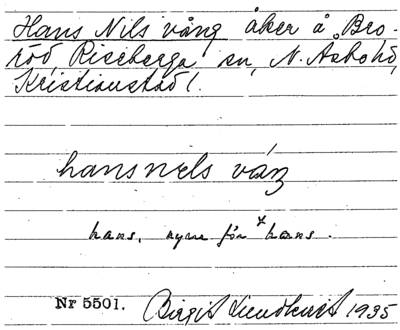 Hans Nils vång åker å Bro-
röd, Riseberga sn, N. Asbo hd,
Kristianstad l.
hansnɛls váŋ
hans, nyare för hans.
Nr 5501. Birgit Lundkvist 1935